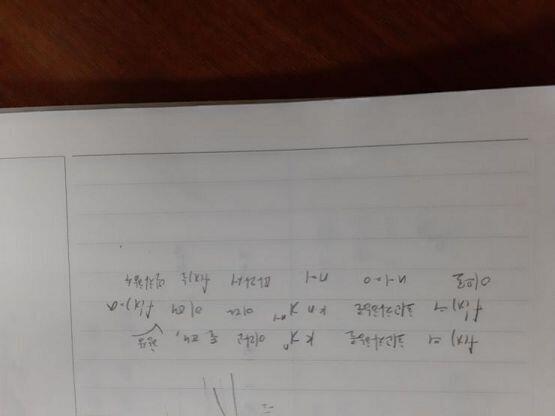 f(x)의 최고차항을 kxⁿ 이라고 두면,
f'(x)의 최고차항은 knxⁿ⁻¹ 이다 이때 f'(x)=a
이므로 n-1=0 n=1 따라서 f(x)는 일차함수